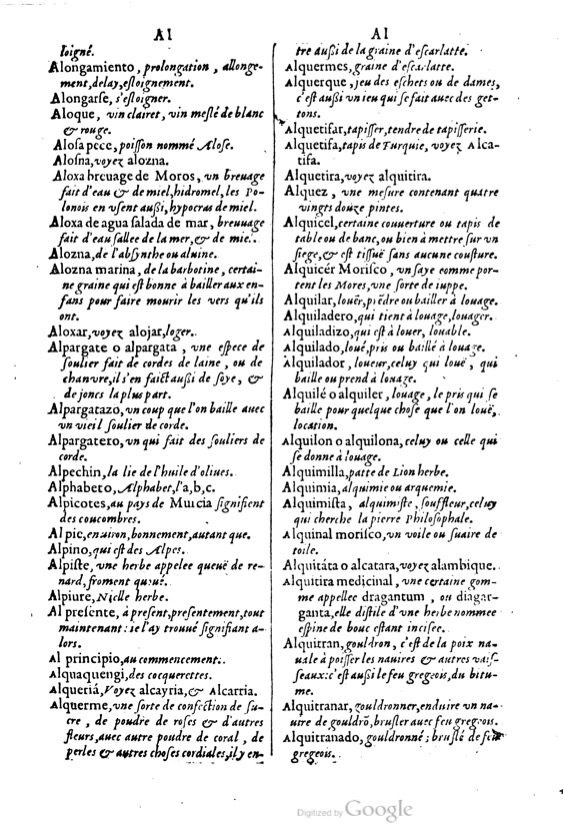 Al
loigné.
Alongamiento, prolongation, allonge-
ment, delay, esloignement.
Alongarse, s'esloigner.
Aloque, vin clairet, vin meslé de blanc
& rouge.
Alosa pece, poisson nommé Alose.
Alosna, voyez alozna.
Aloxa breuage de Moros, vn breuage
fait d'eau & de miel, hidromel, les Po-
lonois en vsent aussi, hypocras de miel.
Aloxa de agua salada de mar, breuuage
fait d'eau sallee de la mer, & de miel.
Alozna, de l'absynthe ou aluine.
Alozna marina, de la barbotine, certai-
ne graine qui est bonne à bailler aux en-
fans pour faire mourir les vers qu'ils
ont.
Aloxar, voyez alojar, loger.
Alpargate o alpargata, vne espece de
soulier fait de cordes de laine, ou de
chanure, il s'en faict aussi de soye, &
de joncs la plus part.
Alpargatazo, vn coup que l'on baille auec
vn vieil soulier de corde.
Alpargatero, vn qui fait des souliers de
corde.
Alpechin, la lie de l'huile d'oliues.
Alphabeto, Alphabet, l'a, b, c.
Alpicotes, au pays de Murcia signifient
des coucombres.
Al pie, enuiron, bonnement, autant que.
Alpino, qui est des Alpes.
Alpiste, vne herbe appelee queuë de re-
nard, froment queuë.
Alpiure, Nielle herbe.
Al presente, à present, presentement, tout
maintenant: ie l'ay trouué signifiant a-
lors.
Al principio, au commencement.
Alquaquengi, des cocquerettes.
Alqueriá, Voyez alcayria, & Alcarria.
Alquerme, vne sorte de confection de su-
cre, de poudre de roses & d'autres
fleurs, auec autre poudre de coral, de
perles & autres choses cordiales, il y en-
Al
tre aussi de la graine d'escarlatte.
Alquermes, graine d'escarlatte.
Alquerque, jeu des eschets ou de dames,
c'est aussi vn ieu qui se fait auec des get-
tons.
Alquetifar, tapisser, tendre de tapisserie.
Alquetifa, tapis de Turquie, voyez Alca-
tifa.
Alquetira, voyez alquitira.
Alquez, vne mesure contenant quatre
vingts douze pintes.
Alquicel, certaine couuerture ou tapis de
table ou de banc, ou bien à mettre sur vn
siege, & est tissuë sans aucune cousture.
Alquicér Morisco, vn saye comme por-
tent les Mores, vne sorte de iuppe.
Alquilar, louër, pr̃edre ou bailler à louage.
Alquiladero, qui tient à louage, louager.
Alquiladizo, qui est à louer, louable.
Alquilado, loué, pris ou baillé à louage.
Alquilador, loueur, celuy qui louë, qui
baille ou prend à louage.
Alquilé o alquiler, louage, le pris qui se
baille pour quelque chose que l'on louë,
location.
Alquilon o alquilona, celuy ou celle qui
se donne à louage.
Alquimilla, patte de Lion herbe.
Alquimia, alquimie ou arquemie.
Alquimista, alquimiste, souffleur, celuy
qui cherche la pierre Philosophale.
Alquinal morisco, vn voile ou suaire de
toile.
Alquitáta o alcatara, voyez alambique.
Alquitira medicinal, vne certaine gom-
me appellee dragantum, ou diagar-
ganta, elle distile d'vne herbe nommee
espine de bouc estant incisee.
Alquitran, gouldron, c'est de la poix na-
uale à poisser les nauires & autres vais-
seaux: c'est aussi le feu gregeois, du bitu-
me.
Alquitranar, gouldronner, enduire vn na-
uire de gouldrõ, brusler auec feu gregeois.
Alquitranado, gouldronné; bruslé de feu
gregeois.
Digitized by Google